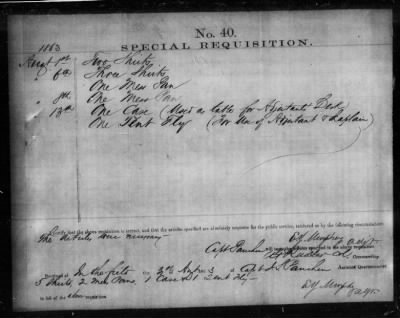 No. 40.
1863
SPECIAL REQUISITION.
Augt 1st Two Shirts
" 6th Three Shirts
One Mess Pan
" 8th One Mess Pan
" 13th One Case (Used as table for Adjutants Desk
One Tent Fly (For Use of Adjutant &
I certify that the above requisition is correct, and that the articles specified are absolutely requisite for the public service, rendered so by the following circumstances:
The Articles were necessary
Adjt.
Capt
will issue the articles specified in the above requisition.
Commanding.
Assistant Quartermaster.
Received at In the field of Capt
5 Shirts 2 Mess Pans, 1 Case & 1 Tent Fly
in full of the above requisition
Adjt.